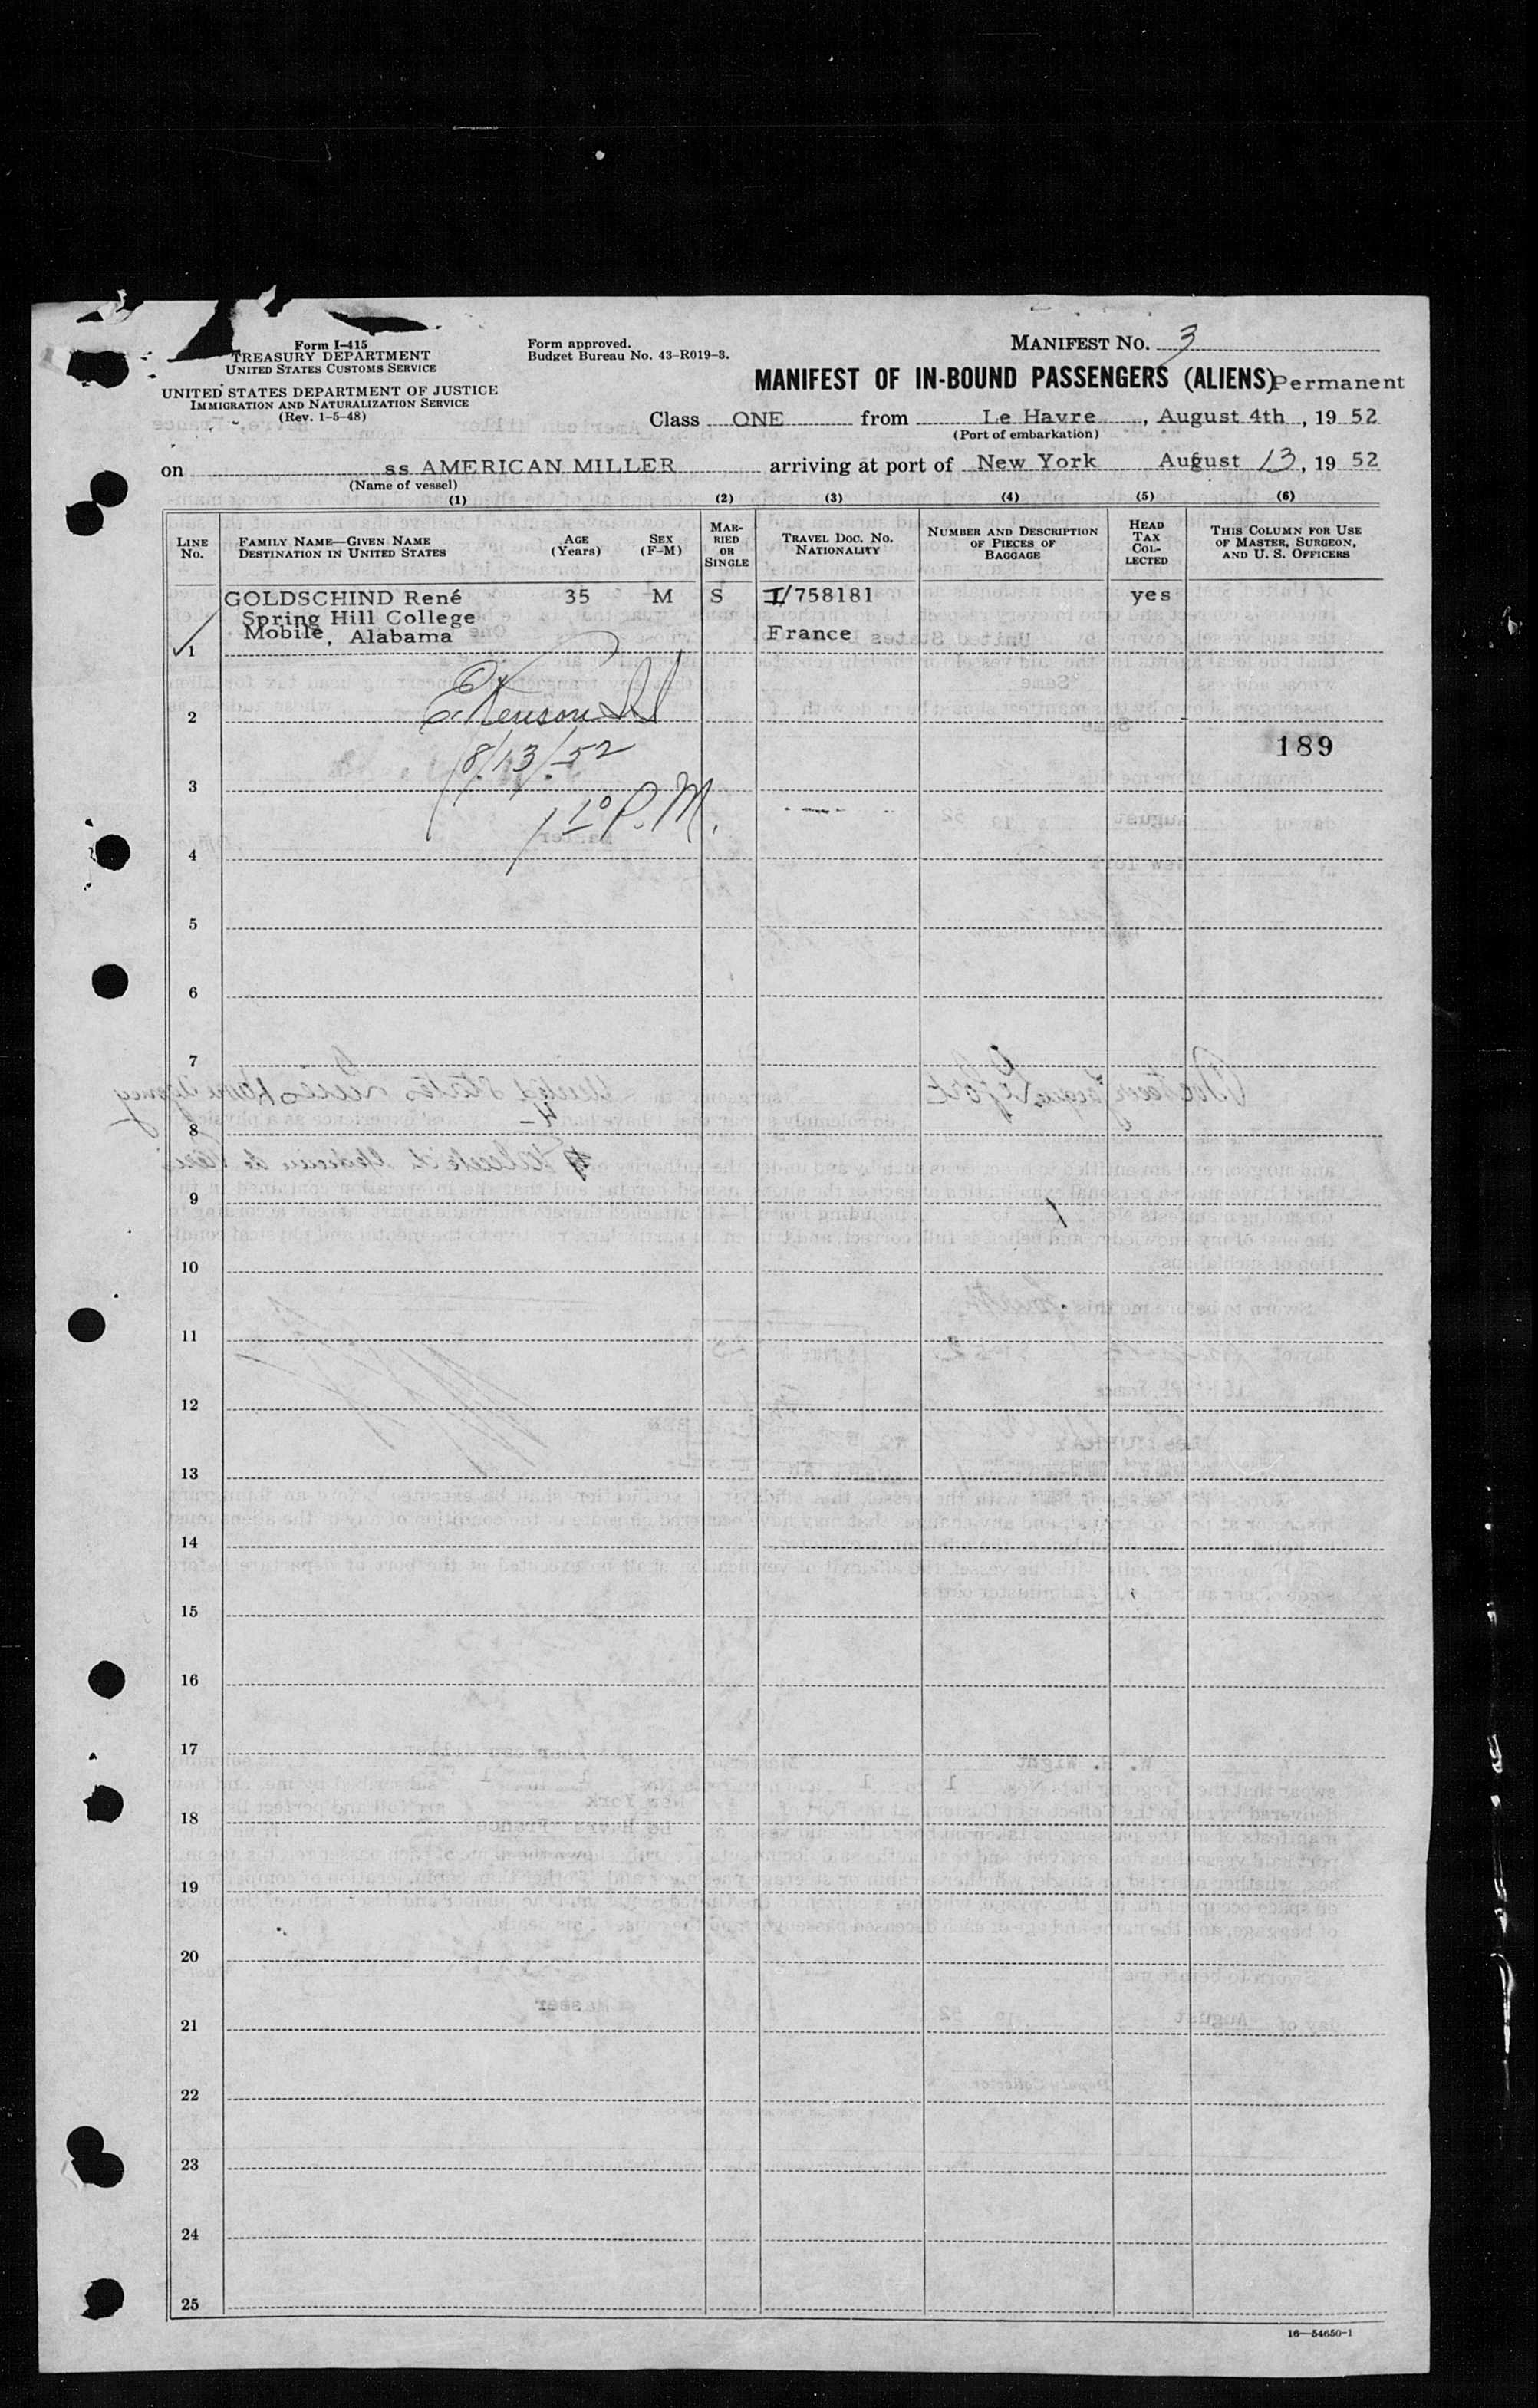 Form I-415
TREASURY DEPARTMENT
UNITED STATES CUSTOMS SERVICE
UNITED STATES DEPARTMENT OF JUSTICE
IMMIGRATION AND NATURALIZATION SERVICE
(Rev. 1-5-48)
Form approved.
Budget Bureau No. 43-R019-3.
MANIFEST NO. 3
MANIFEST OF IN-BOUND PASSENGERS (ALIENS) Permanent
Class ONE from Le Havre, August 4th, 19 52
(Port of embarkation)
on ss AMERICAN MILLER arriving at port of New York August 13, 19 52
(Name of vessel)
(1) (2) (3) (4) (5) (6)
LINE No.
FAMILY NAME—GIVEN NAME
DESTINATION IN UNITED STATES
AGE (Years)
SEX (F-M)
MARRIED OR SINGLE
TRAVEL DOC. NO.
NATIONALITY
NUMBER AND DESCRIPTION OF PIECES OF BAGGAGE
HEAD TAX COLLECTED
THIS COLUMN FOR USE OF MASTER, SURGEON, AND U. S. OFFICERS
GOLDSCHIND René 35 M S I/758181 yes
Spring Hill College
Mobile, Alabama France
1
2
189
8/13/52
3
1 10 P.M.
4
5
6
7
8
9
10
11
12
13
14
15
16
17
18
19
20
21
22
23
24
25
16—54650-1